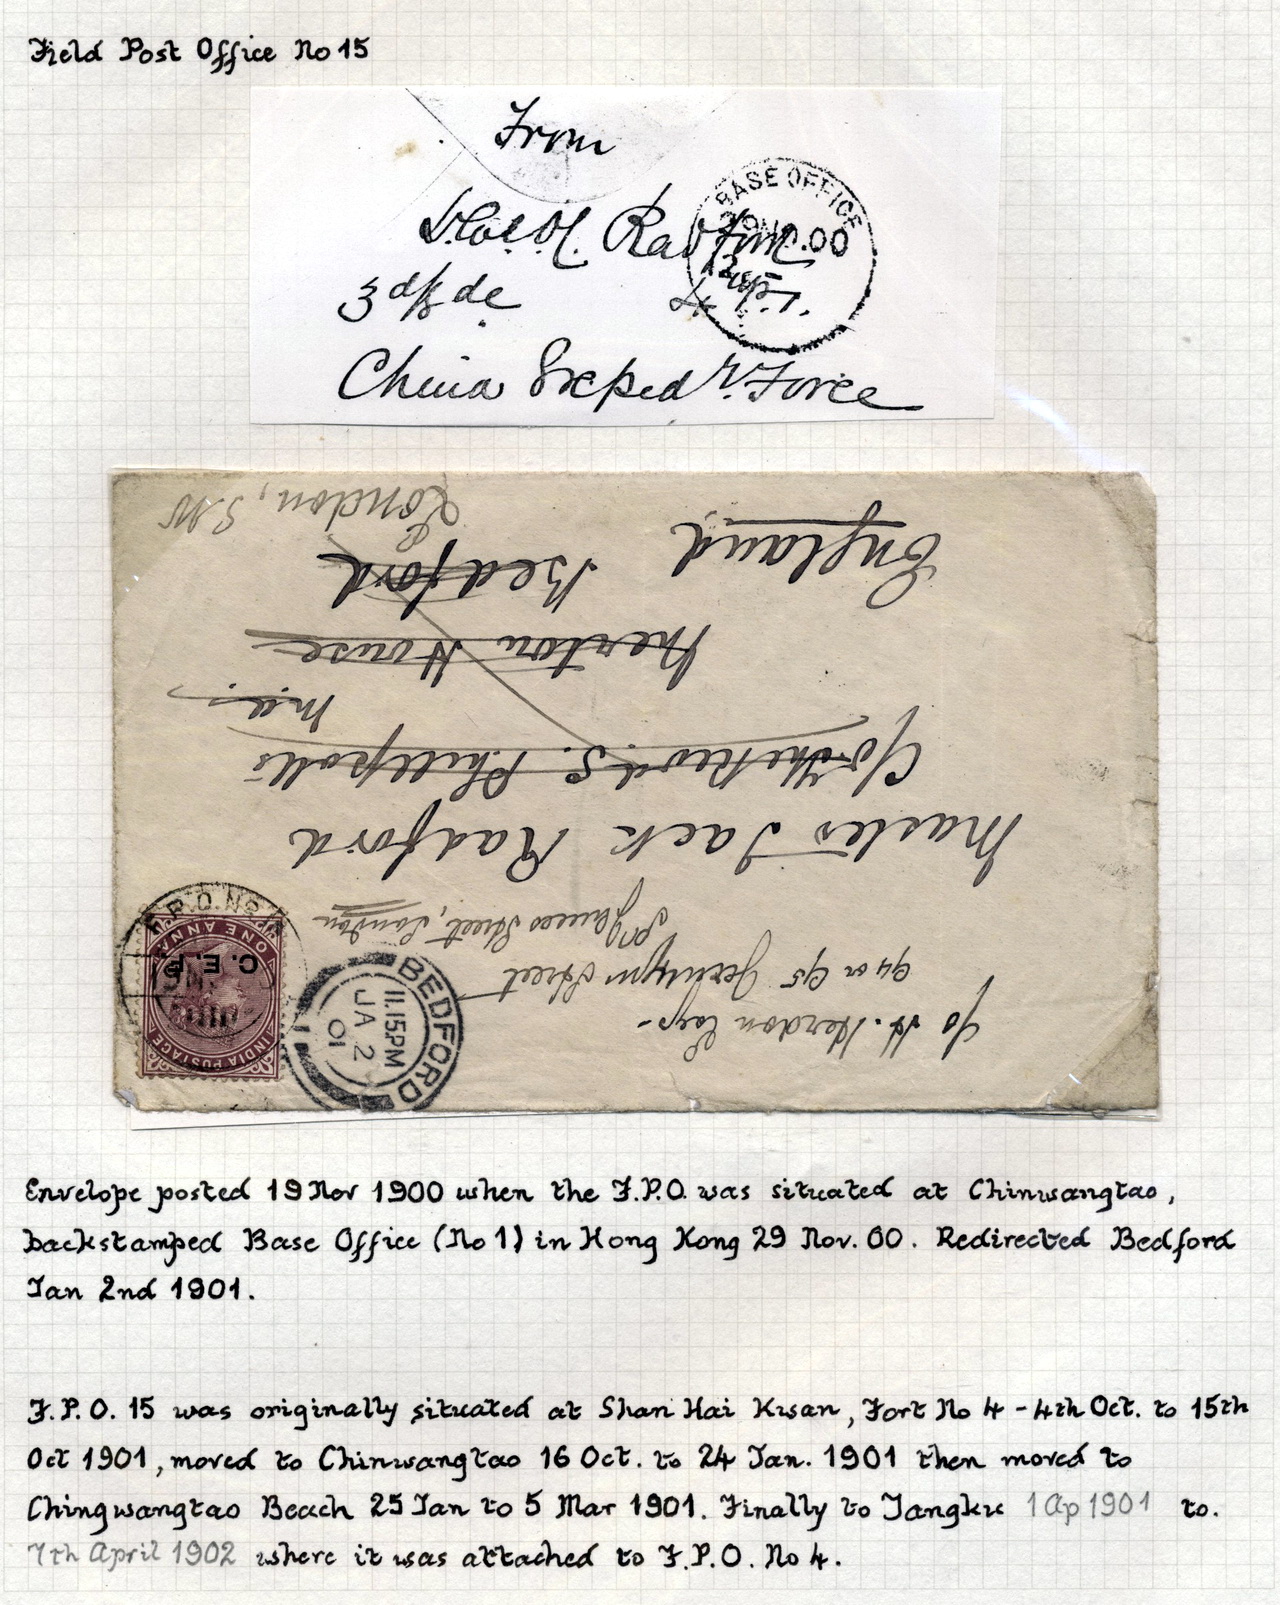 Field Post Office No 15
From
Radford
3rd Bde
BASE OFFICE
29 NO. 00
China Exped. Force
London, S.W
England
Bedford
Merton House
M.A.
C/o the Revd S. Phillpotts
Master Jack Radford
St James Street, London
94 or 95 Jermyn Street
c/o H. Herdon Esq.
F.P.O. No
INDIA POSTAGE
C. E. F.
ONE ANNA
BEDFORD
11.15PM
JA 2
01
Envelope posted 19 Nov 1900 when the F.P.O. was situated at Chinwangtao,
backstamped Base Office (No 1) in Hong Kong 29 Nov. 00. Redirected Bedford
Jan 2nd 1901.
F.P.O. 15 was originally situated at Shan Hai Kwan, Fort No 4 - 4th Oct. to 15th
Oct 1901, moved to Chinwangtao 16 Oct. to 24 Jan. 1901 then moved to
Chingwangtao Beach 25 Jan to 5 Mar 1901. Finally to Tangku 1 Ap 1901 to.
7th April 1902 where it was attached to F.P.O. No 4.